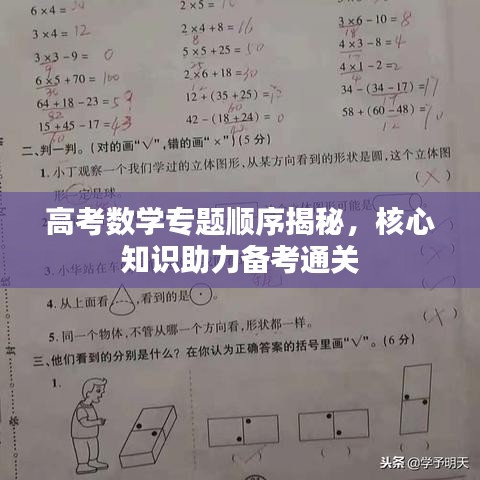 6×4= 24
2×5= 10
3×6-10=8
18
3×4= 12
2×4+8=16
8
4×3-8=4
3×3-9= 0
9
5×5+25=50
25
4×1-2=2
6×5+70=100
2×6+18=30
34-(34-17)=17
17
64+18-23=59
12+(35+25)=
58+(60-48)=
12
15+45-17=43
42-(18+24)=0
二、判一判。(对的画“√”,错的画“×”)(5分)
1.小丁观察一个我们学过的立体图形,从某方向看到的形状是圆,这个立体图
形一定是球。
(×)
高考数学专题顺序揭秘，核心
知识助力备考通关
3.小华站在
4.从上面看,看到的是
5.同一个物体,不管从哪一个方向看,形状都一样。
(×)
三、他们看到的分别是什么?在你认为正确答案的括号里画“√”。(6分)
1.
头条 @学予明天